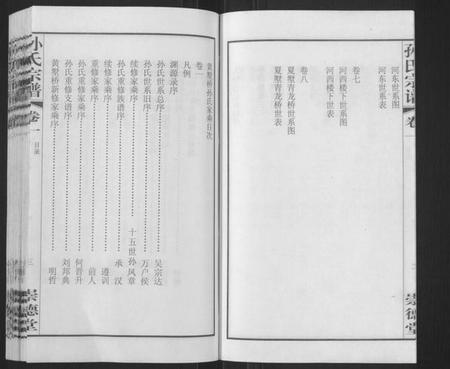 孙氏宗谱
卷
崇德堂
河东世系图
河东世系表
卷七
河西楼下世系图
河西楼下世表
卷八
夏墅青龙桥世系图
夏墅青龙桥世表
黄墅桥孙氏家乘目次
卷一
凡例
渊源录序
孙氏世系总序……吴宗达
孙氏世系旧序……万户侯
续修家乘序……十五世孙风章
孙氏重修族谱序……承汉
续修家乘序……遵训
重修家乘序……前人
孙氏重修家乘序……何晋升
孙氏重修支谱序……刘邦典
黄墅桥新修家乘序……明哲
孙氏宗谱
卷一
目录
三
崇德堂